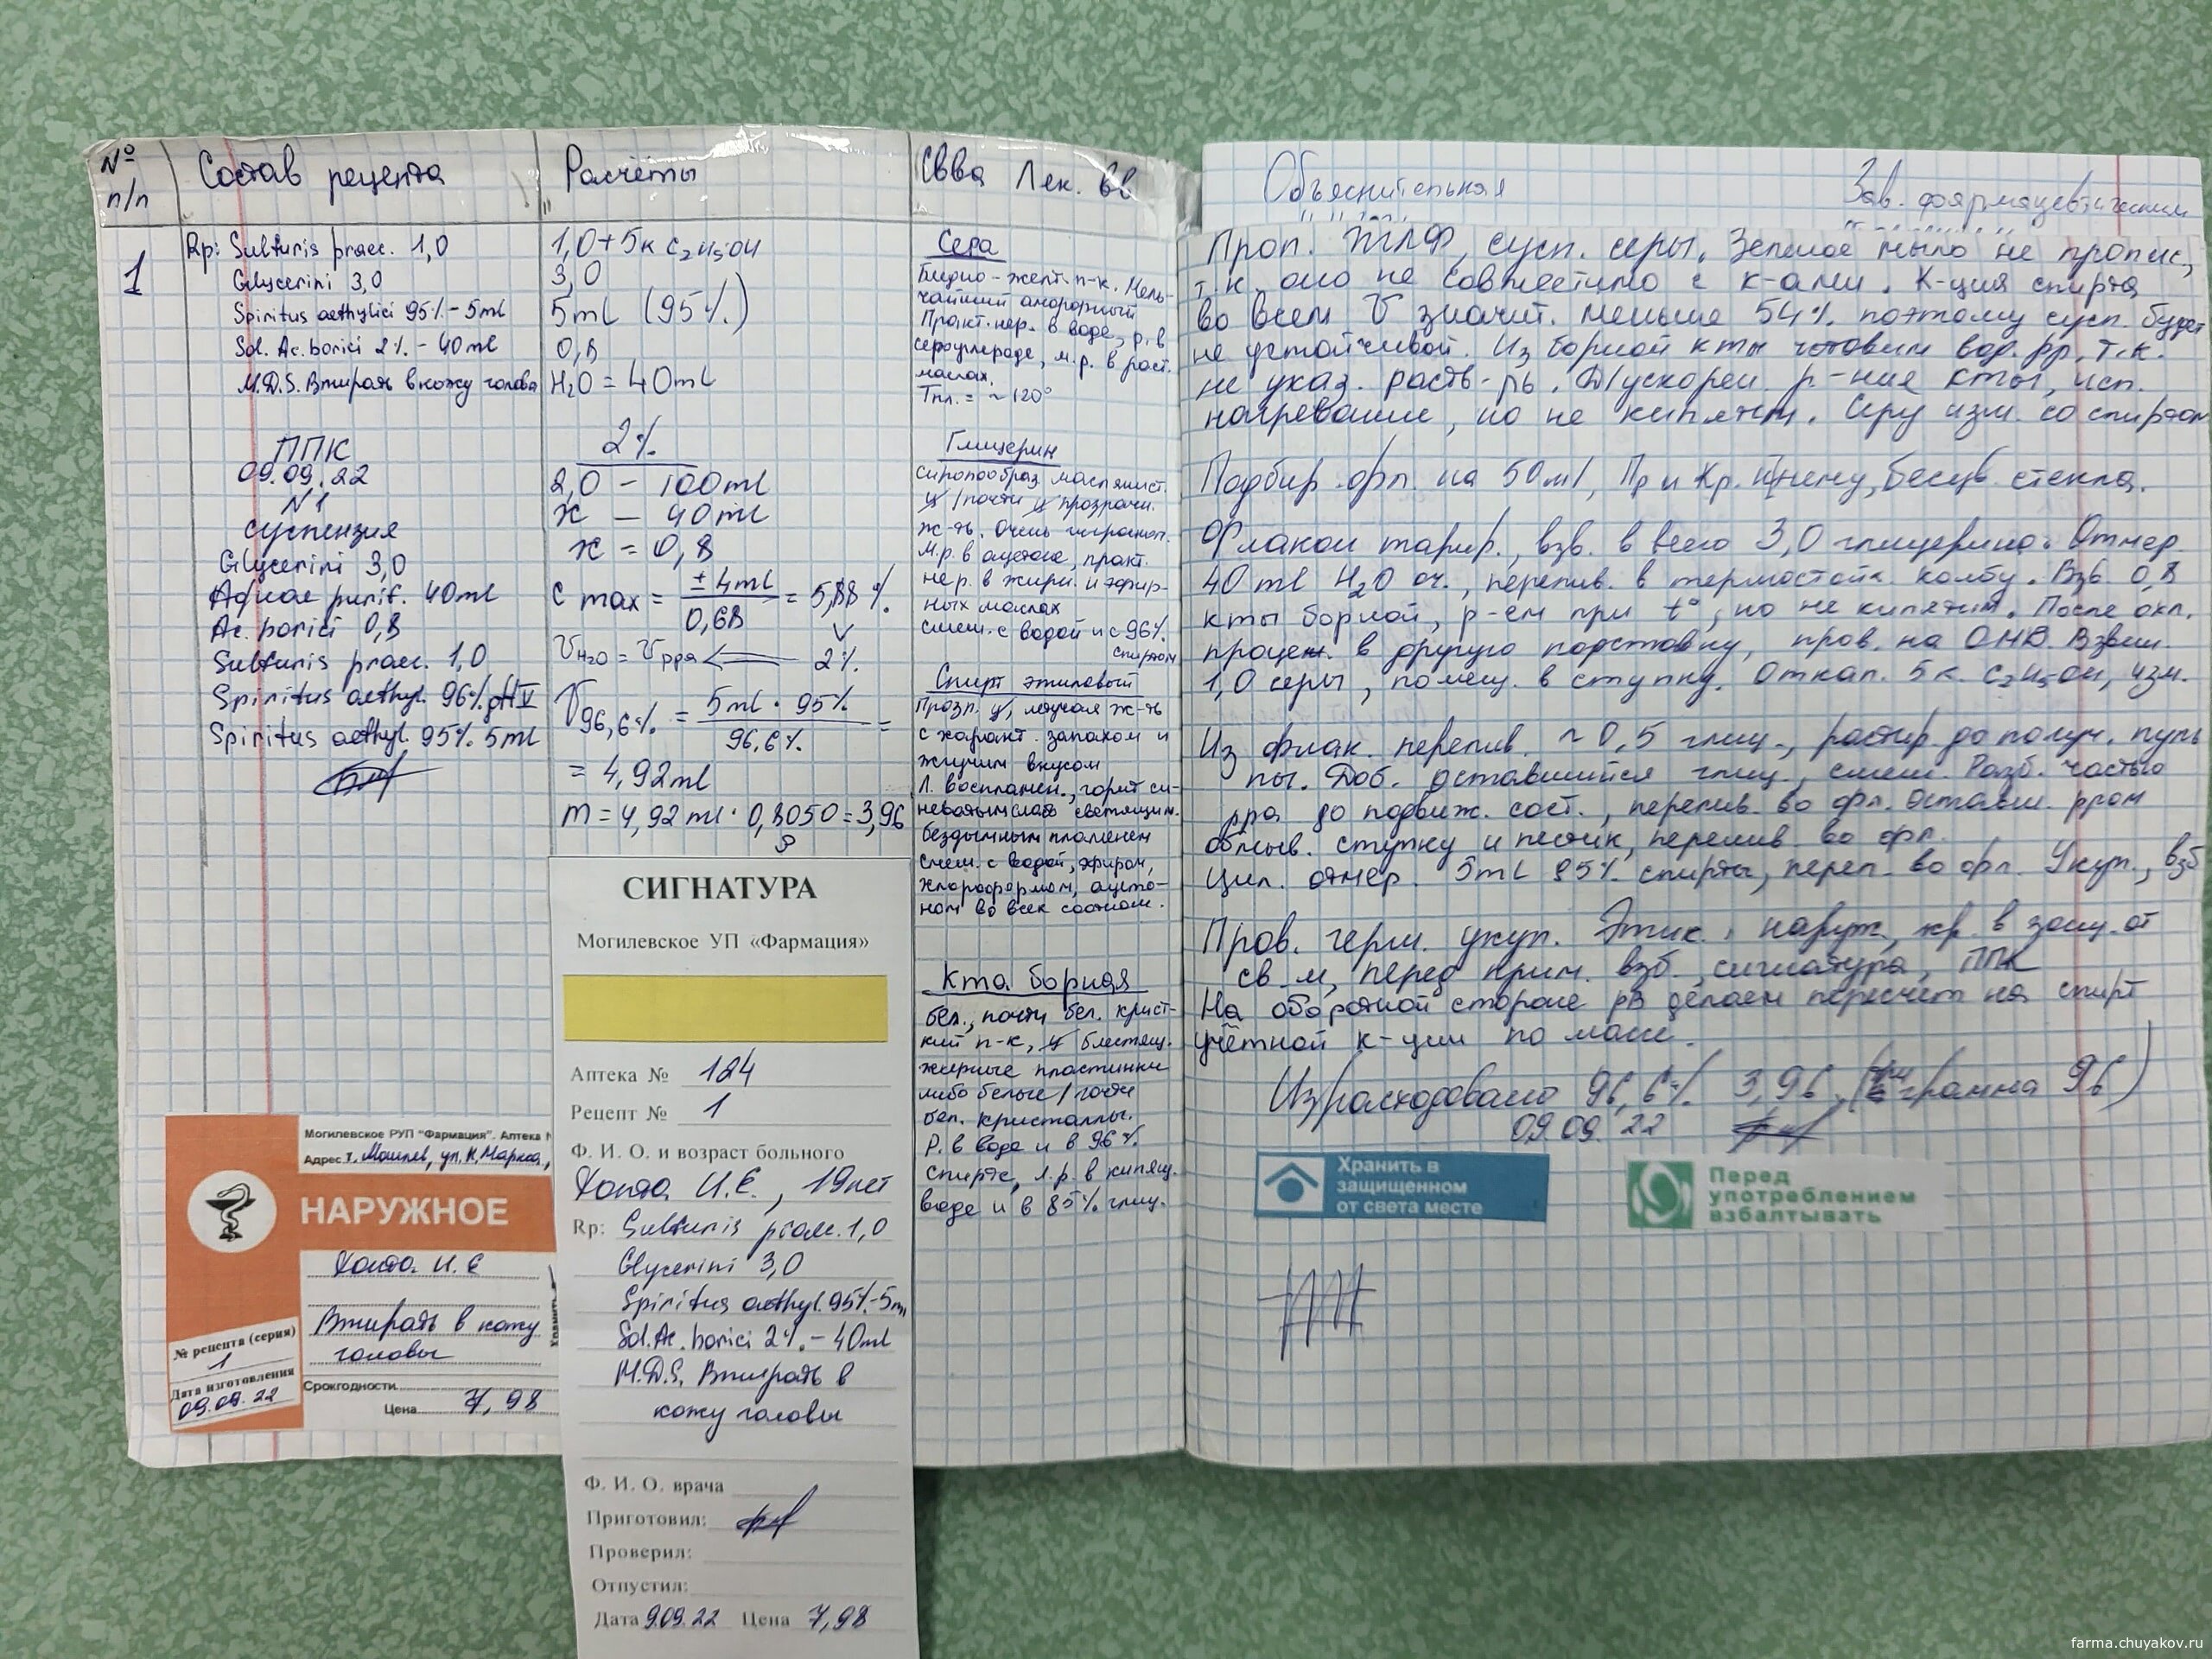 № п/п
Состав рецепта
Расчёты
Свва Лек. вв
1
Rp: Sulfuris praec. 1,0
Glycerini 3,0
Spiritus aethylici 95% - 5ml
Sol. Ac. borici 2% - 40ml
M.D.S. Втирать в кожу головы
ППК
09.09.22
N1
суспензия
Glycerini 3,0
Aquae purif. 40ml
Ac. borici 0,8
Sulfuris praec. 1,0
Spiritus aethyl. 96% gtt V
Spiritus aethyl. 95% 5ml
1,0+5к C2H5OH
3,0
5ml (95%)
0,8
H2O = 40ml
2%
2,0 - 100ml
x - 40ml
x = 0,8
C max = ±4ml / 0,68 = 5,88 %
VH2O = Vрра 2%
V96,6% = 5ml · 95% / 96,6% =
= 4,92ml
m = 4,92ml · 0,8050 = 3,96
ρ
Сера
Бледно-желт. п-к. Мель-
чайший аморфный
Практ. нер. в воде, р. в
сероуглероде, м.р. в раст.
маслах.
Тпл. = ~120°
Глицерин
сиропообраз. маслянист.
/почти прозрачн.
ж-ть. Очень гигроскоп.
М.р. в ацетоне, практ.
нер. в жирн. и эфир-
ных маслах
смеш. с водой и с 96%
спиртом
Спирт этиловый
Прозр. летучая ж-ть
с характ. запахом и
жгучим вкусом
Л. воспламен., горит си-
неватым слабо светящим.
бездымным пламенем
Смеш. с водой, эфиром,
хлороформом, ацето-
ном во всех соотнош.
Кта борная
бел., почти бел. крист-
кий п-к, блестящ.
жирные пластинки
либо белые/почти
бел. кристаллы.
Р. в воде и в 96%
спирте, л.р. в кипящ.
воде и в 85% глиц.
Объяснительная
Зав. фармацевтическим
Проп. ЖЛФ, сусп. серы. Зеленое мыло не пропис,
т.к. оно не совместимо с к-ами. К-ция спирта
во всем V значит. меньше 54% поэтому сусп. будет
не устойчивой. Из борной кты готовим вод. рр, т.к.
не указ. раств-ль. Д/ускорен. р-ния кты, исп.
нагревание, но не кипятим. Серу изм. со спиртом
Подбир. фл. на 50ml, Пр и Кр. к нему, бесцв. стекла.
Флакон тарир., взв. в него 3,0 глицерина. Отмер.
40ml H2O оч., перелив. в термостойк. колбу. Взв 0,8
кты борной, р-ем при t°, но не кипятим. После охл.
процеж. в другую подставку, пров. на ОМВ. Взвеш.
1,0 серы, помещ. в ступку. Откап. 5к. C2H5OH, изм.
Из флак. перелив. ~0,5 глиц., растир. до получ. пуль
пы. Доб. оставшийся глиц., смеш. Разб. частью
рра до подвиж. сост., перелив. во фл. Оставш. рром
обмыв. ступку и пестик, перелив. во фл.
Цил. отмер. 5ml 95% спирта, переп. во фл. Укуп., взб
Пров. герм. укуп. Этик. наруж., хр. в защ. от
св м, перед прим. взб., сигнатура, ППК
На оборотной стороне рв делаем пересчет на спирт
учётной к-ции по массе.
Израсходовано 96,6% 3,96 (три грамма 96)
09.09.22
Хранить в
защищенном
от света месте
Перед
употреблением
взбалтывать
СИГНАТУРА
Могилевское УП «Фармация»
Аптека № 124
Рецепт № 1
Ф. И. О. и возраст больного
И.Е., 19 лет
Rp: Sulfuris praec. 1,0
Glycerini 3,0
Spiritus aethyl. 95% - 5ml
Sol. Ac. borici 2% - 40ml
M.D.S. Втирать в
кожу головы
Ф. И. О. врача
Приготовил:
Проверил:
Отпустил:
Дата 9.09.22 Цена 7,98
Могилевское РУП "Фармация". Аптека
Адрес г. Могилев, ул. К. Маркса,
НАРУЖНОЕ
И.Е
Втирать в кожу
головы
№ рецепта (серия)
1
Дата изготовления
09.09.22
Срок годности
Цена 7,98
farma.chuyakov.ru